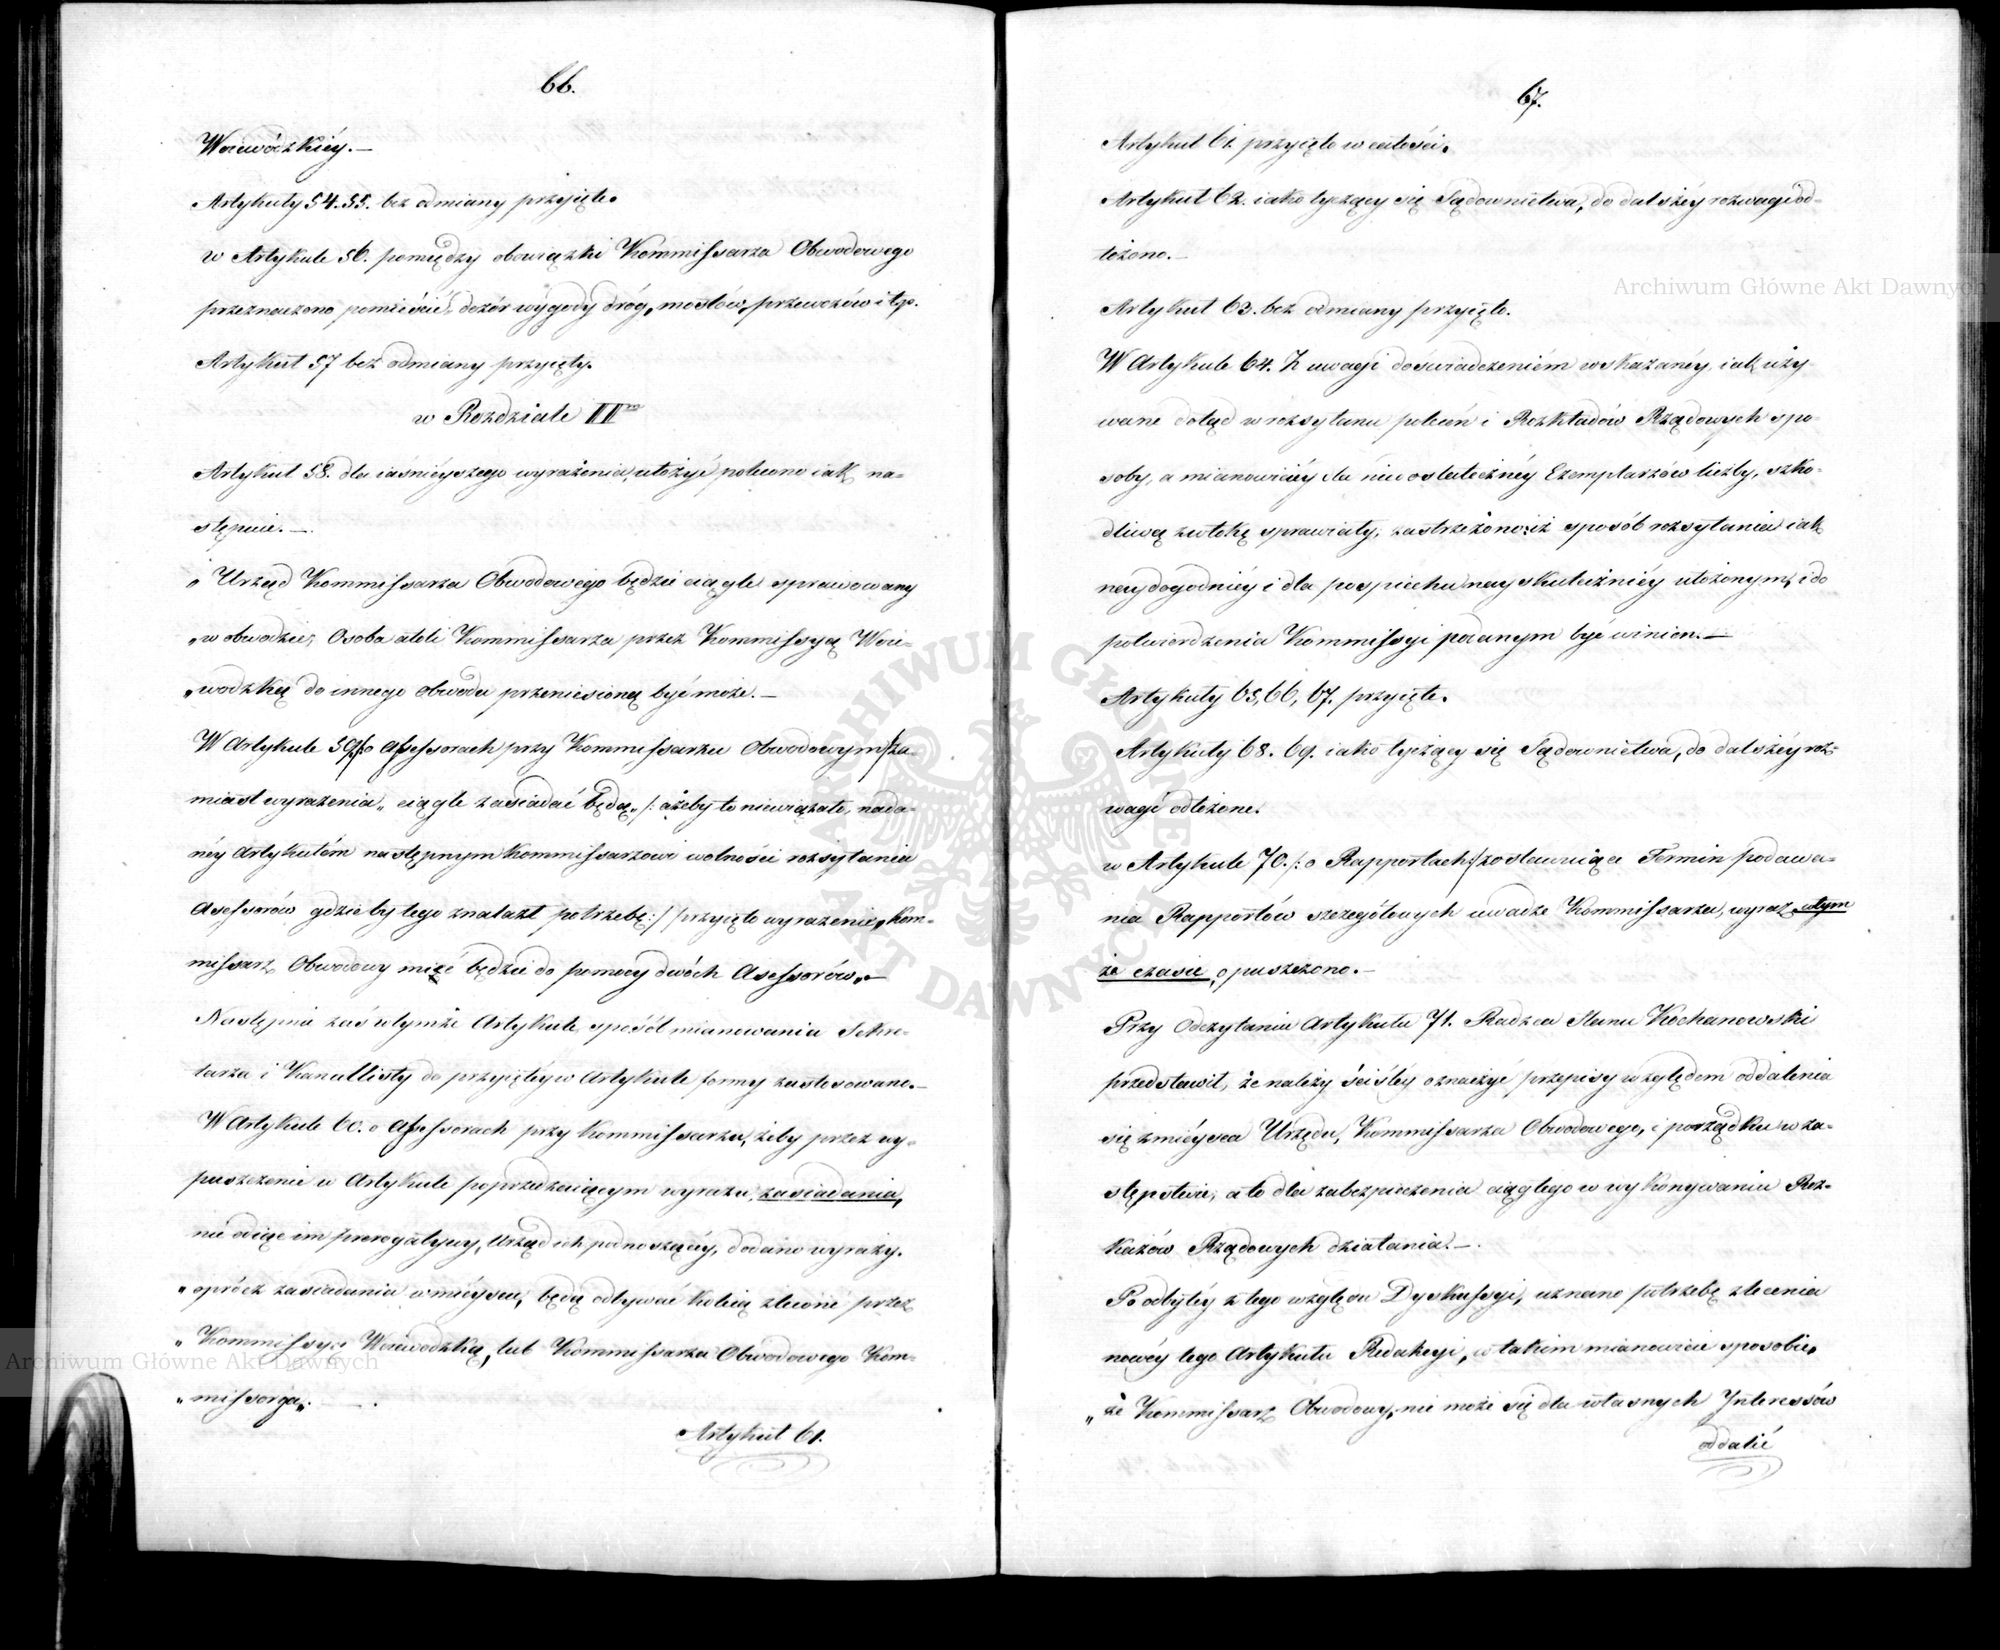 66.
Woiewódzkiéy.—
Artykuły 54. 55. bez odmiany przyjęte.
w Artykule 56. pomiędzy obowiązki Kommissarza Obwodowego
przeznaczono pomieścić dozór wygody dróg, mostów, przewozów i t.p.
Artykuł 57 bez odmiany przyjęty.
w Rozdziale IIm
Artykuł 58. dla iaśniéyszego wyrażenia, ułożyć polecono iak na-
stępuie.—
„Urząd Kommissarza Obwodowego będzie ciągle sprawowany
„w obwodzie; Osoba atoli Kommissarza przez Kommissyą Woie-
„wodzką do innego obwodu przeniesioną być może.—
W Artykule 59. /:o Assessorach przy Kommissarzu Obwodowym:/ za-
miast wyrażenia „ciągle zasiadać będą„ /: ażeby to niewiązało, nada-
néy Artykułem następnym Kommissarzowi wolności rozsyłania
Assessorów gdzieby tego znalazł potrzebę:/ przyięto wyrażenie „Kom-
missarz Obwodowy mieć będzie do pomocy dwóch Assessorów„—
Następnie zaś w tymże Artykule, sposób mianowania Sekre-
tarza i Kancellisty do przyiętéy w Artykule formy zastosowano.—
W Artykule 60. o Assessorach przy Kommissarzu, żeby przez wy-
puszczenie w Artykule poprzedzaiącym wyrazu, zasiadania,
nie odięto im prerogatywy, Urząd ich podnoszącéy, dodano wyrazy.
„oprócz zasiadania w mieyscu, będą odbywać koleią zlecone przez
„Kommissyę Woiewodzką, lub Kommissarza Obwodowego Kom-
„missorya„.
Artykuł 61.
67.
Artykuł 61. przyięto w całości.
Artykuł 62. iako tyczący się Sądownictwa, do dalszéy rozwagi od-
łożono.—
Artykuł 63. bez odmiany przyięto.
W Artykule 64. Z uwagi doświadczeniém wskazanéy, iak uży-
wane dotąd w rozsyłaniu poleceń i Rozkładów Rządowych spo-
soby, a mianowiciéy dla niedostatecznéy Exemplarzów liczby, szko-
dliwą zwłokę sprawiały, zastrzeżono: iż sposób rozsyłania iak
naydogodniéy i dla pospiechu nayskuteczniéy ułożonym, i do
potwierdzenia Kommissyi podanym być winien.—
Artykuły 65, 66, 67. przyięte.
Artykuły 68. 69. iako tyczący się Sądownictwa, do dalszéy roz-
wagi odłożone.
w Artykule 70. /:o Rapportach:/ zostawuiąc Termin podawa-
nia Rapportów szczegółowych uwadze Kommissarza, wyraz w tym
że czasie, opuszczono.—
Przy Odczytaniu Artykułu 71. Radzca Stanu Kochanowski
przedstawił, że należy ściśley oznaczyć przepisy względem oddalenia
się z mieysca Urzędu, Kommissarza Obwodowego, i porządku w za-
stępstwie, a to dla zabezpieczenia ciągłego w wykonywaniu Roz-
kazów Rządowych działania.—
Po odbytéy z tego względu Dyskussyi, uznano potrzebę zlecenia
nowéy tego Artykułu Redakcyi, w takim mianowicie sposobie,
„że Kommissarz Obwodowy, nie może się dla własnych Interessów
oddalić
Archiwum Główne Akt Dawnych
Archiwum Główne Akt Dawnych
ARCHIWUM GŁÓWNE
AKT DAWNYCH